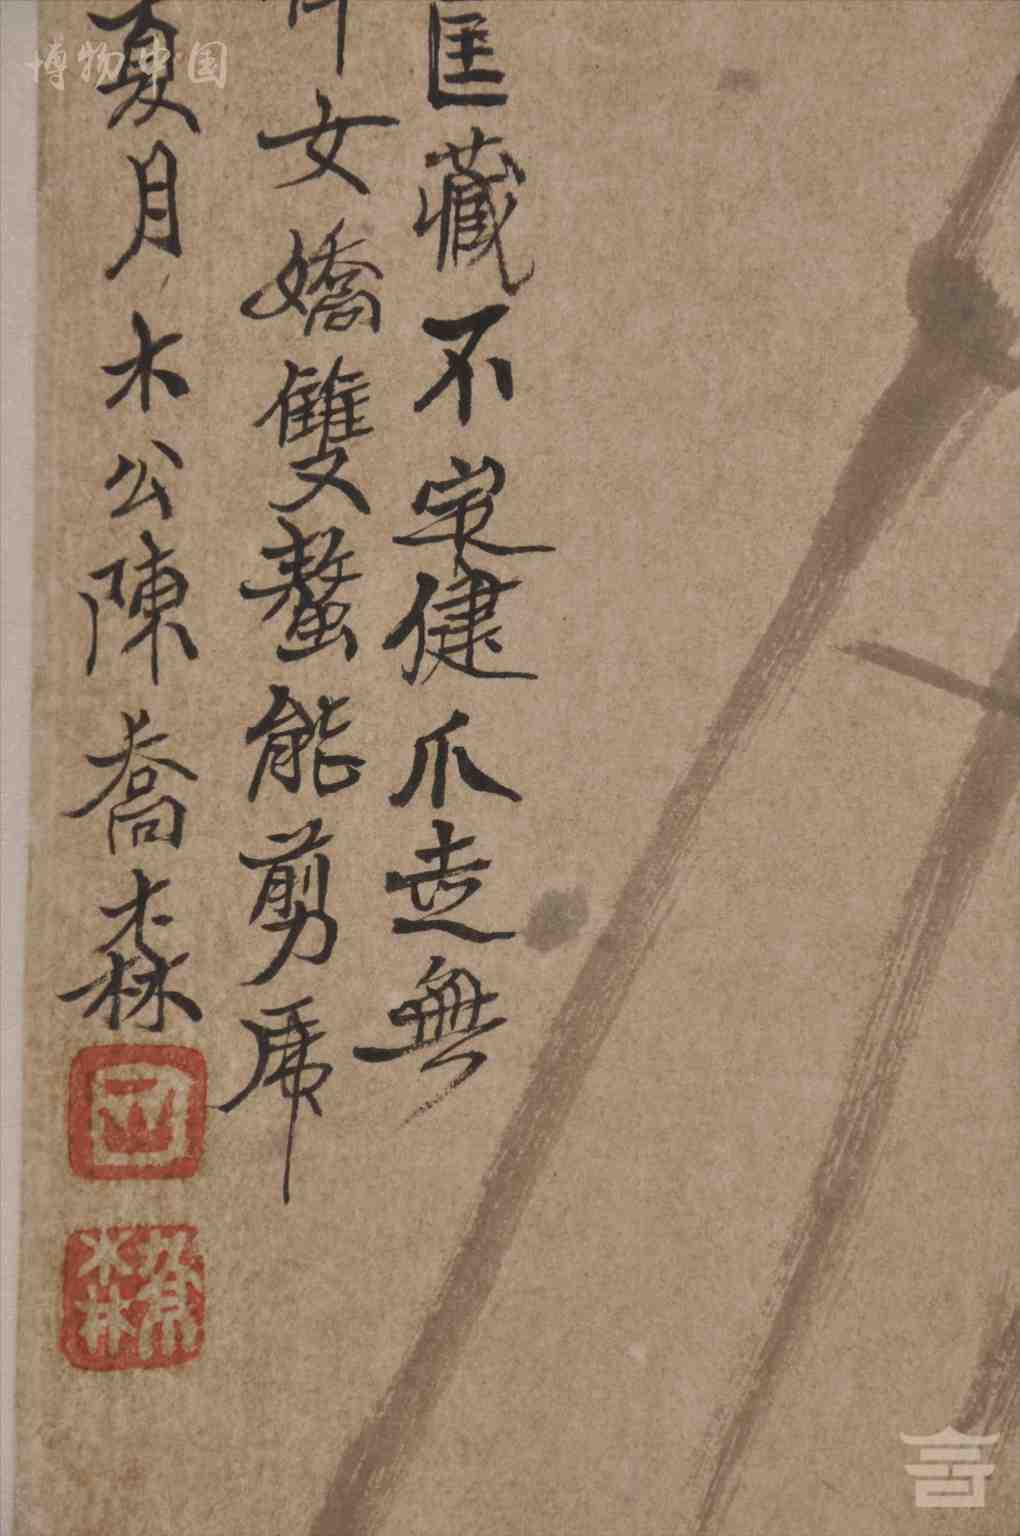 匡藏不定健爪走無
女嬌雙螯能剪
夏月木公陳喬森
喬森
博物中国